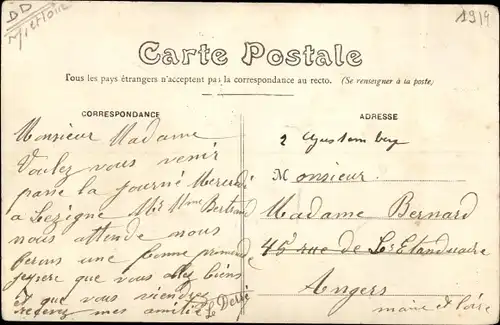 DD
1914
Carte Postale
Tous les pays étrangers n'acceptent pas la correspondance au recto. (Se renseigner à la poste)
CORRESPONDANCE
Monsieur Madame
Voulez vous venir
passe la journé Mercredi
a Lezigne Mr Mme Bertrand
nous attende nous
ferons une bonne promenade
jespere que vous allez biens
et que vous viendrez
recevez mes amitié
ADRESSE
2
Monsieur
Madame Bernard
45 rue de Les Etanduaire
Angers
maine et Loire